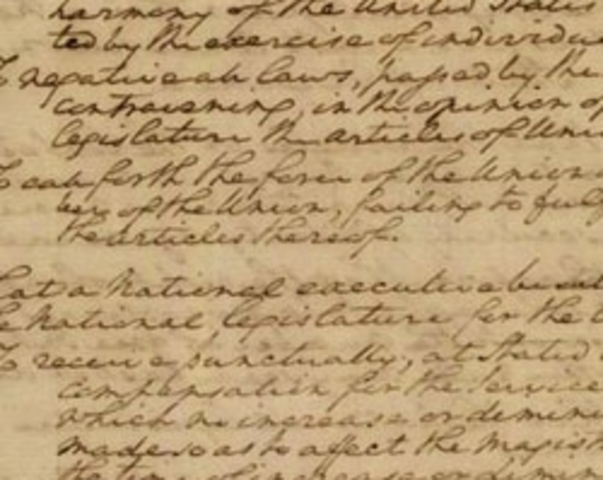 harmony of the United States
ted by the exercise of individua
To negative all laws, passed by the
contravening, in the opinion of
legislature the articles of Unio
To call forth the force of the Union
ber of the Union, failing to fulf
the articles thereof.
that a National executive be
he National legislature for the
To receive punctually, at stated
compensation for the service
which no increase or dimin
made so as to affect the Magist
the time of increase or dimin